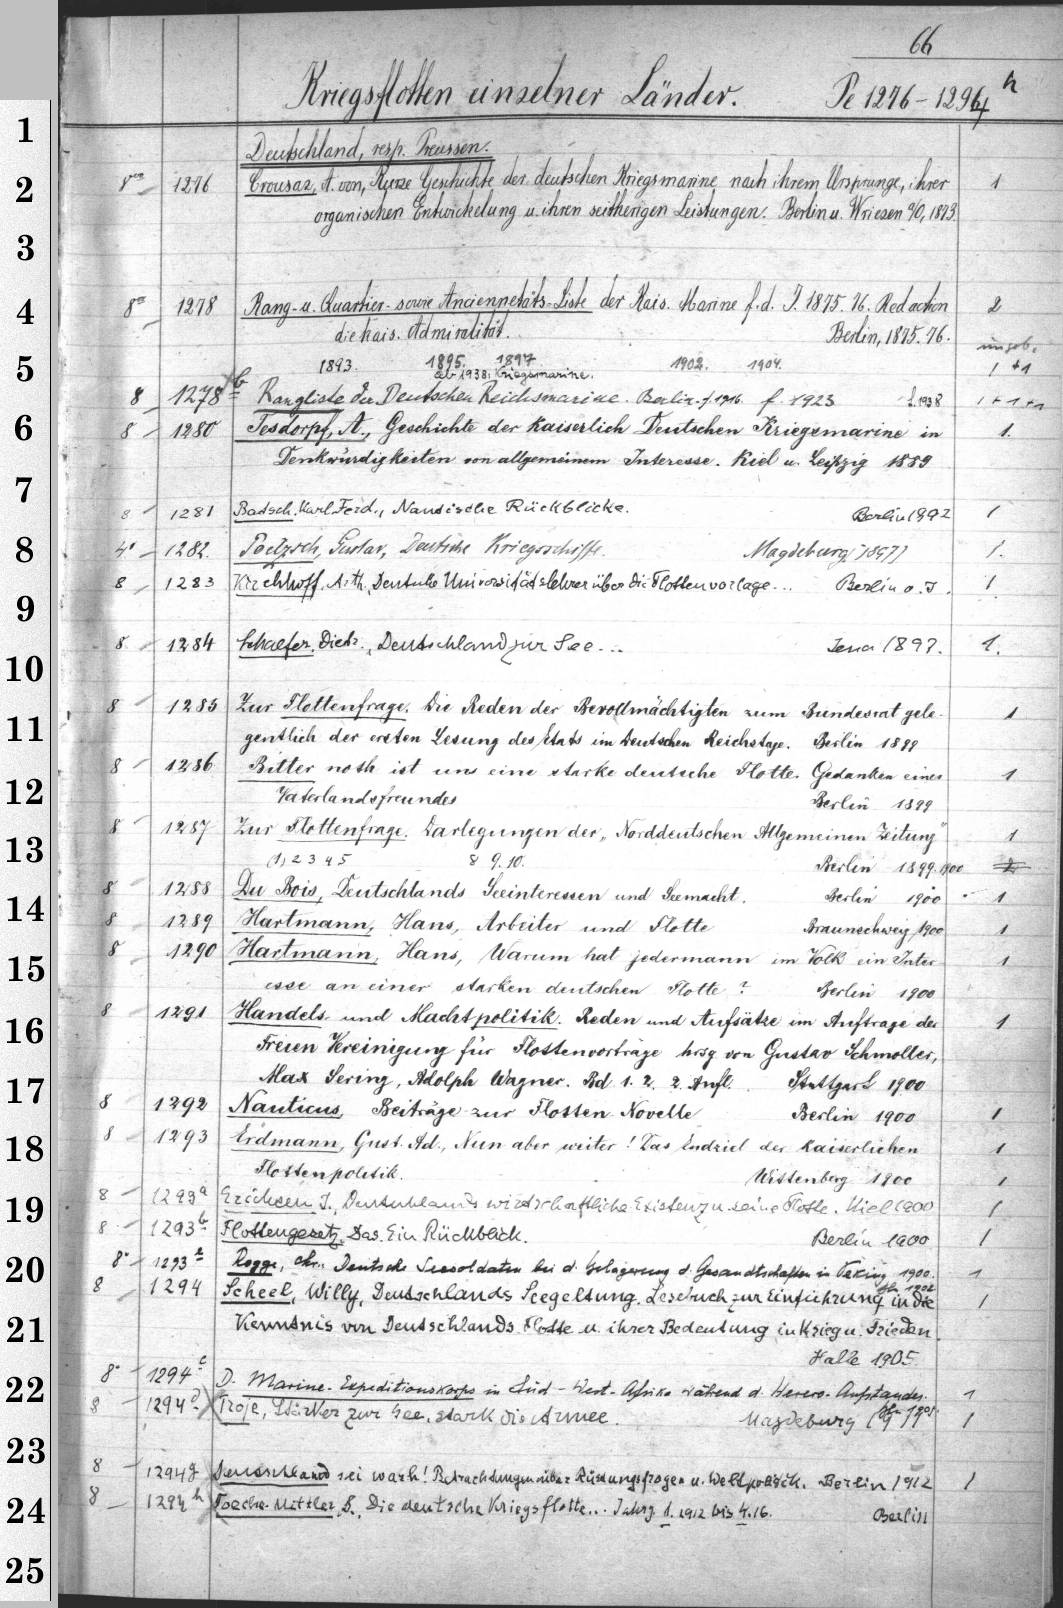 66
Kriegsflotten einzelner Länder. Pe 1276-1294 h
1
Deutschland, resp. Preussen.
2 8vo 1276 Crousaz, A. von, Kurze Geschichte der deutschen Kriegsmarine nach ihrem Ursprunge, ihrer 1
organischen Entwickelung u. ihren seitherigen Leistungen. Berlin u. Wriezen a/O, 1873
3
4 8° 1278 Rang- u. Quartier- sowie Anciennetäts-Liste der Kais. Marine f. d. J. 1875. 76. Redaction 2
die Kais. Admiralität. Berlin, 1875. 76. ungeb.
5 1893. 1895. 1897 1902. 1904. 1 +1
ab 1938: Kriegsmarine.
8 1278 b Rangliste der Deutschen Reichsmarine. Berlin f. 1916 f. 1923 f. 1938 1 + 1 + 1
6 8 1280 Tesdorpf, A., Geschichte der Kaiserlich Deutschen Kriegsmarine in 1.
Denkwürdigkeiten von allgemeinem Interesse. Kiel u. Leipzig 1889
7
8 1281 Batsch, Karl Ferd., Nautische Rückblicke. Berlin 1892 1
8 4° 1282. Toelzsch, Gustav, Deutsche Kriegsschiffe. Magdeburg [1897] 1.
8 1283 Kirchhoff, Arth., Deutsche Universitätslehrer über die Flottenvorlage... Berlin o. J. 1
9
8. 1284 Schaefer, Dietr., Deutschland zur See... Jena 1897. 1.
10
8 1285 Zur Flottenfrage. Die Reden der Bevollmächtigten zum Bundesrat gele- 1
11 gentlich der ersten Lesung des Etats im Deutschen Reichstage. Berlin 1899
8 1286 Bitter noth ist uns eine starke deutsche Flotte. Gedanken eines 1
12 Vaterlandsfreundes Berlin 1899
8 1287 Zur Flottenfrage. Darlegungen der „Norddeutschen Allgemeinen Zeitung" 1
13 (1) 2 3 4 5 8 9. 10. Berlin 1899. 1900
8 1288 Du Bois, Deutschlands Seeinteressen und Seemacht. Berlin 1900 1
14 8 1289 Hartmann, Hans, Arbeiter und Flotte Braunschweig 1900 1
8 1290 Hartmann, Hans, Warum hat jedermann im Volk ein Inter- 1
15 esse an einer starken deutschen Flotte? Berlin 1900
8 1291 Handels- und Machtpolitik. Reden und Aufsätze im Auftrage der 1
16 Freien Vereinigung für Flottenvorträge hrsg von Gustav Schmoller,
17 Max Sering, Adolph Wagner. Bd 1. 2. 2. Aufl. Stuttgart 1900
8 1292 Nauticus, Beiträge zur Flotten-Novelle Berlin 1900 1
18 8 1293 Erdmann, Gust. Ad., Nun aber weiter! Das Endziel der Kaiserlichen 1
Flottenpolitik. Wittenberg 1900 1
19 8 1293a Erichsen J., Deutschlands wirtschaftliche Existenz u. seine Flotte. Kiel 1900 1
8 1293b Flottengesetz, Das. Ein Rückblick. Berlin 1900 1
20 8° 1293 Rogge, Chr., Deutsche Seesoldaten bei d. Belagerung d. Gesandtschaften in Peking 1900. 1
Bln 1902
8 1294 Scheel, Willy, Deutschlands Seegeltung. Lesebuch zur Einführung in die 1
21 Kenntnis von Deutschlands Flotte u. ihrer Bedeutung in Krieg u. Frieden.
Halle 1905
22 8° 1294c D. Marine-Expeditionskorps in Süd-West-Afrika während d. Herero-Aufstandes. 1
Bln 1905
8 1294d Troje, Stärker zur See, stark die Armee. Magdeburg 1
23
8 1294g Deutschland sei wach! Betrachtungen über Rüstungsfragen u. Weltpolitik. Berlin 1912 1
24 8 1294h Toeche-Mittler, S., Die deutsche Kriegsflotte... Jahrg. 1. 1912 bis 4. 16. Berlin
25